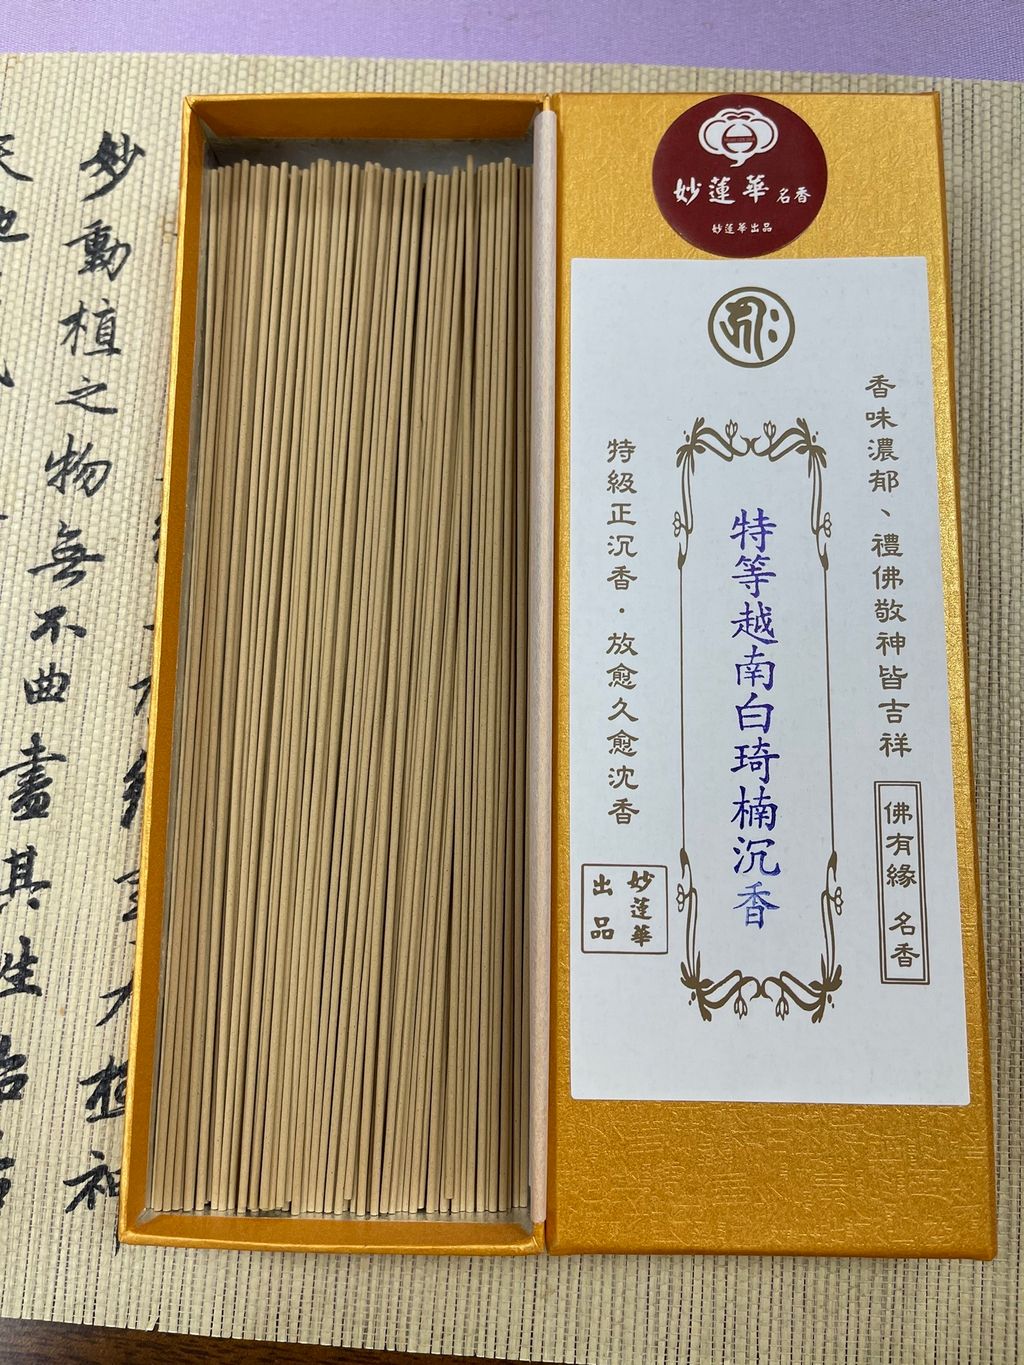 妙蓮華 名香
妙蓮華出品
香味濃郁、禮佛敬神皆吉祥
佛有緣 名香
特等越南白琦楠沉香
特級正沉香・放愈久愈沈香
妙蓮華
出品
妙動植之物無不曲盡其生